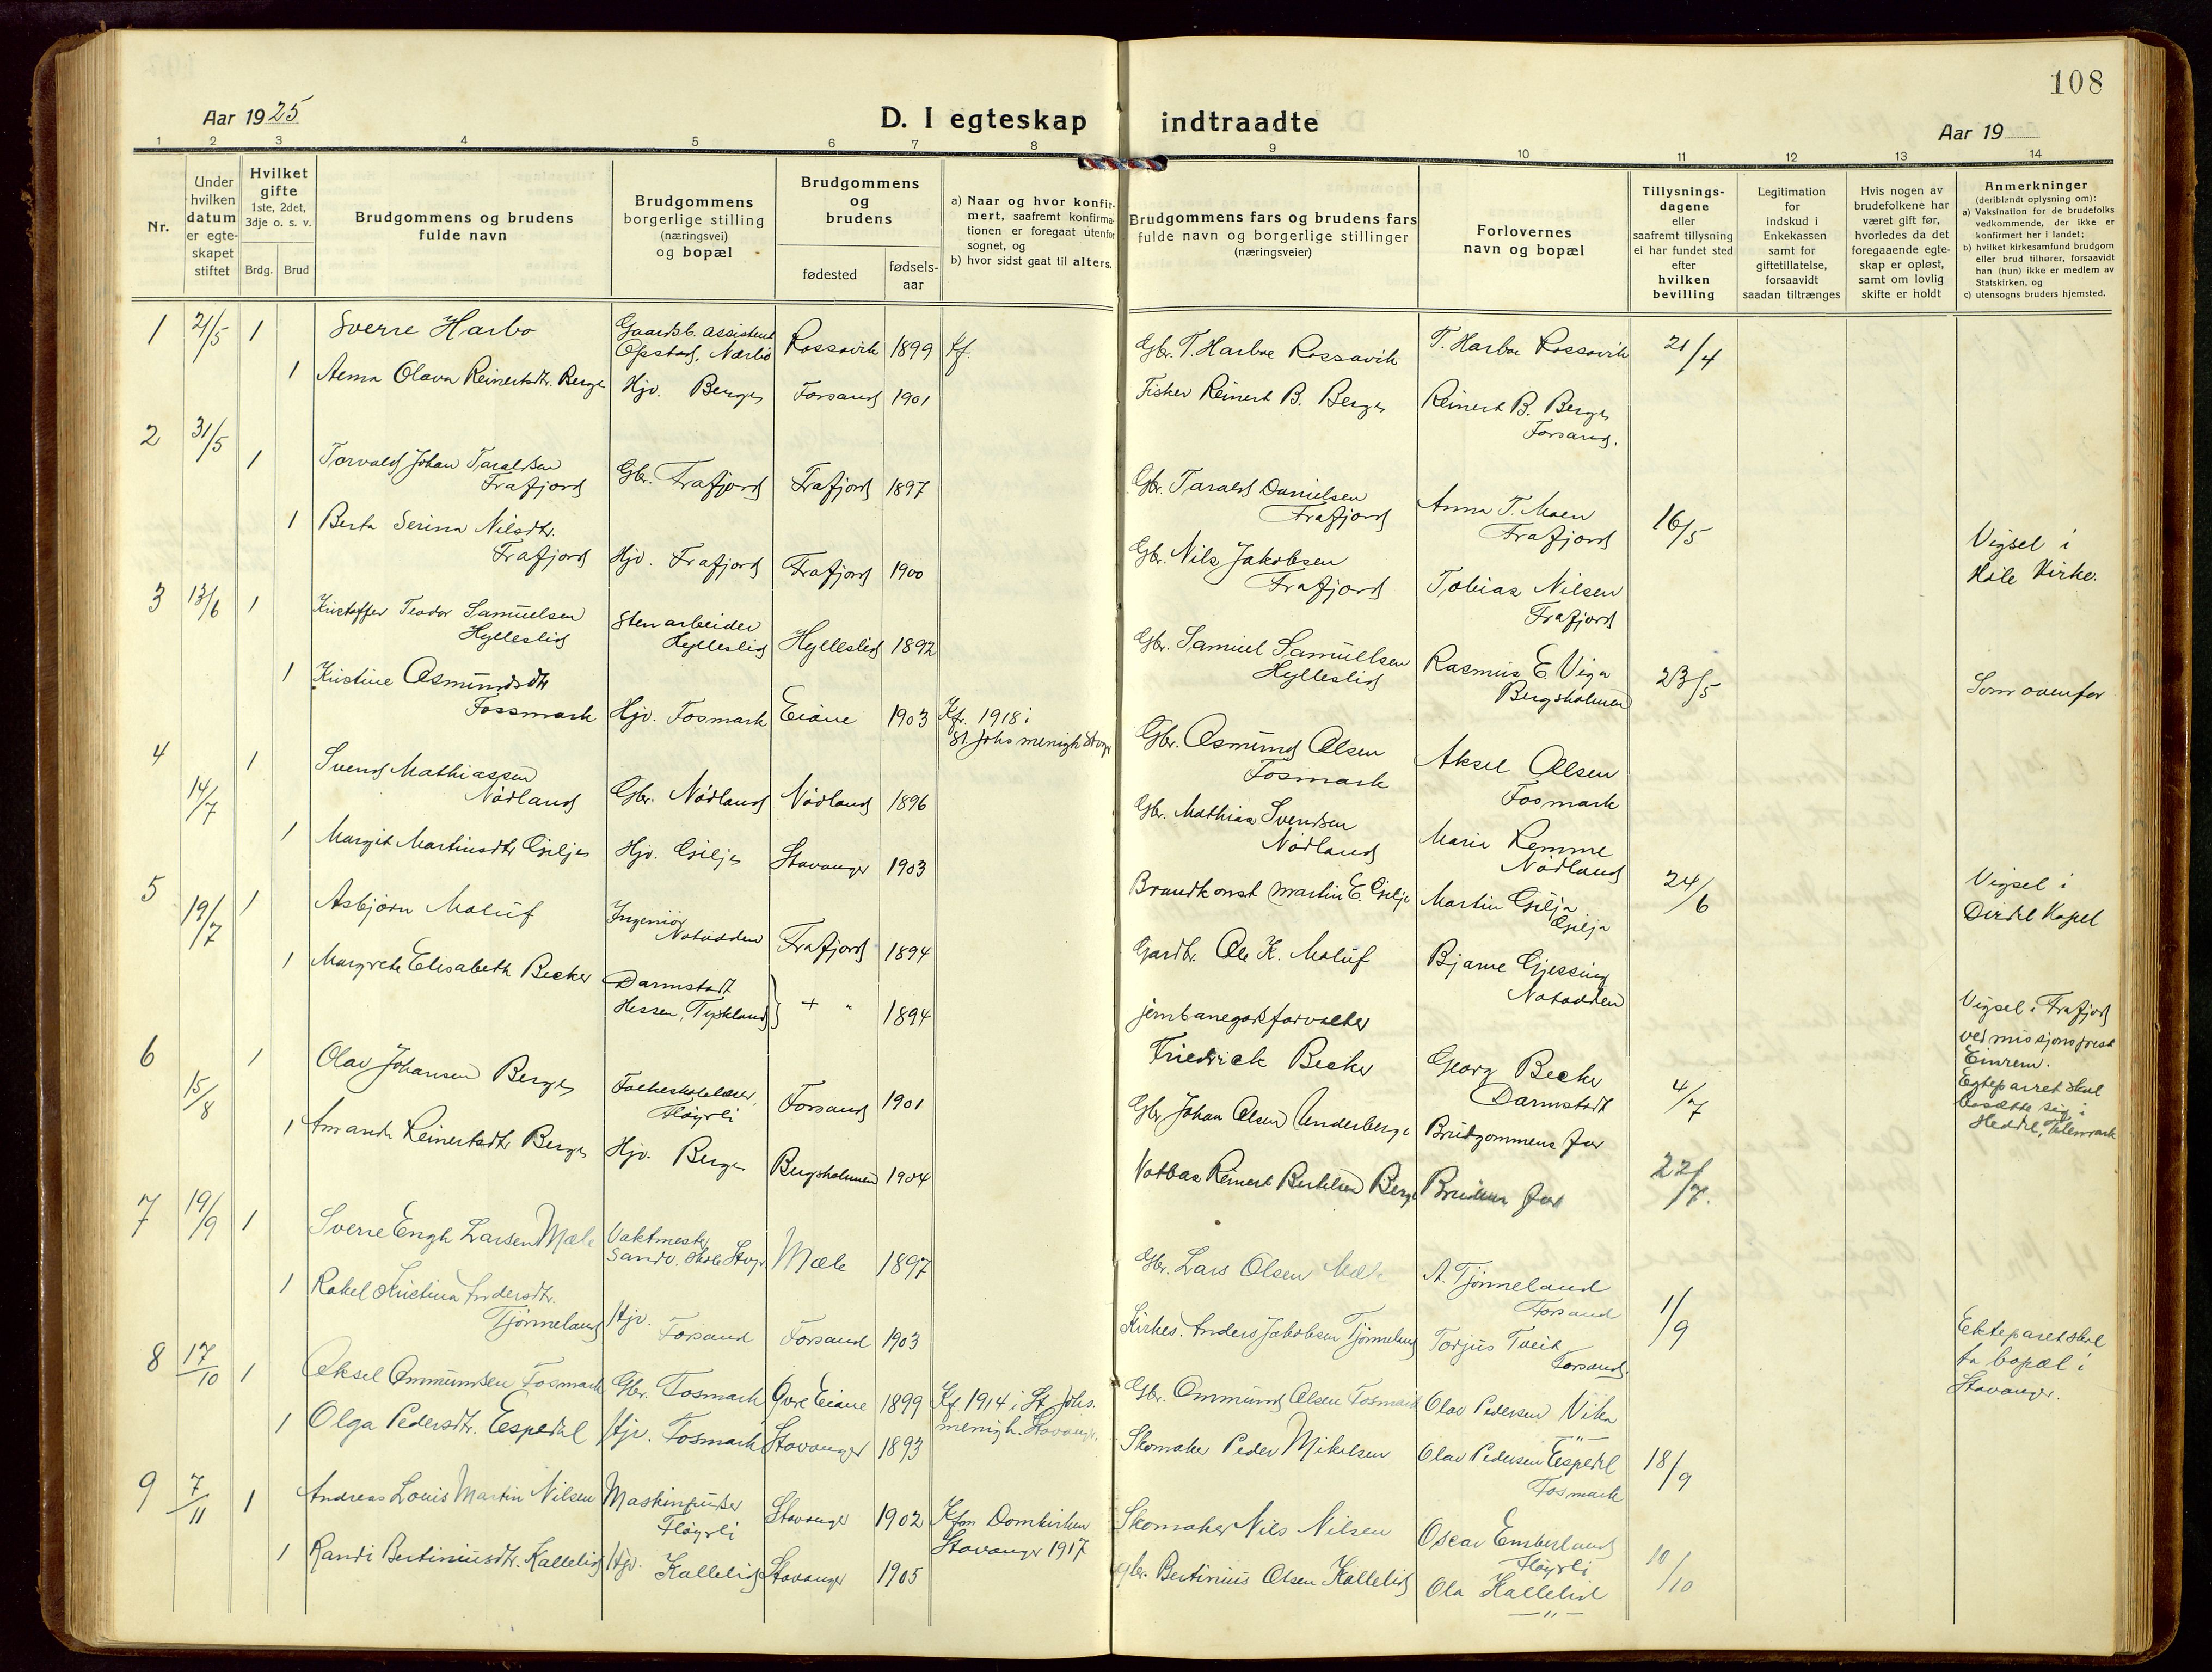 108
Aar 1925
D. I egteskap indtraadte
Aar 19
1 2 3 4 5 6 7 8 9 10 11 12 13 14
Nr.
Under hvilken datum er egteskapet stiftet
Hvilket gifte 1ste, 2det, 3dje o. s. v.
Brdg. Brud
Brudgommens og brudens fulde navn
Brudgommens borgerlige stilling (næringsvei) og bopæl
Brudgommens og brudens
fødested
fødsels-aar
a) Naar og hvor konfir-
mert, saafremt konfirma-
tionen er foregaat utenfor
sognet, og
b) hvor sidst gaat til alters.
Brudgommens fars og brudens fars
fulde navn og borgerlige stillinger
(næringsveier)
Forlovernes
navn og bopæl
Tillysnings-
dagene
eller
saafremt tillysning
ei har fundet sted
efter
hvilken
bevilling
Legitimation
for
indskud i
Enkekassen
samt for
giftetillatelse,
forsaavidt
saadan tiltrænges
Hvis nogen av
brudefolkene har
været gift før,
hvorledes da det
foregaaende egte-
skap er opløst,
samt om lovlig
skifte er holdt
Anmerkninger
(deriblandt oplysning om):
a) Vaksination for de brudefolks
vedkommende, der ikke er
konfirmert her i landet;
b) hvilket kirkesamfund brudgom
eller brud tilhører, forsaavidt
han (hun) ikke er medlem av
Statskirken, og
c) utensogns bruders hjemsted.
1 21/5 1 Sverre Harbo Gaardsb. assistent Opstad, Nærbø Rossavik 1899 Kf. Gbr. T. Harboe Rossavik T. Harboe Rossavik 21/4
1 Anna Olava Reinertsdtr. Berge Hjv. Berge Forsand 1901 Fisker Reinert B. Berge Reinert B. Berge Forsand.
2 31/5 1 Torvald Johan Taraldsen Frafjord Gbr. Frafjord Frafjord 1897 Gbr. Tarald Danielsen Frafjord Anna T. Moen Frafjord 16/5
1 Berta Serina Nilsdtr. Frafjord Hjv. Frafjord Frafjord 1900 Gbr. Nils Jakobsen Frafjord Tobias Nilsen Frafjord Vigsel i Høle Kirke.
3 13/6 1 Kristoffer Teodor Samuelsen Hylleslid Stenarbeider Hylleslid Hylleslid 1892 Gbr. Samuel Samuelsen Hylleslid Rasmus E. Viga Bergsholmen 23/5 Som ovenfor
1 Kristine Osmundsdtr Fossmark Hjv. Fosmark Eiane 1903 Kf. 1918 i St. Johs menigh Stvgr Gbr. Osmund Olsen Fosmark Aksel Olsen Fosmark
4 14/7 1 Svend Mathiassen Nødland Gbr. Nødland Nødland 1896 Gbr. Mathias Svendsen Nødland Marie Remme Nødland 24/6
1 Margit Martinsdtr Gilje Hjv. Gilje Stavanger 1903 Brandkonst Martin E. Gilje Martin Gilje Gilje Vigsel i Dirdal Kapel
5 19/7 1 Asbjørn Maluf Ingeniør Notodden Frafjord 1894 Gardbr. Ole K. Maluf Bjarne Gjessing Notodden
1 Margrete Elisabeth Becker Darmstadt Hessen, Tyskland } + " 1894 jernbanegodsforvalter Friedrich Becker Georg Becker Darmstadt 4/7 Vigsel i Frafjord ved missjonsprest Einrem. Egteparret skal bosætte sig i Heddal, Telemark
6 15/8 1 Olav Johansen Berge Folkeskolelærer, Fløyrli Forsand 1901 Gbr Johan Olsen Underberge Brudgommens far
1 Amanda Reinertsdtr Berge Hjv. Berge Bergsholmen 1904 Notbas Reinert Bertelsen Berge Brudens far 22/7.
7 19/9 1 Sverre Engh Larsen Mæle Vaktmester Sandv. skole Stvgr Mæle 1897 Gbr. Lars Olsen Mæle A. Tjørmeland Forsand 1/9
1 Rakel Kristina Andersdtr. Tjørmeland Hjv. Forsand Forsand 1903 Kirkes. Anders Jakobsen Tjørmeland Torjus Tveit Forsand. Ekteparet skal ta bopæl i Stavanger.
8 17/10 1 Aksel Ommundsen Fosmark Gbr. Fosmark Øvre Eiane 1899 Kf. 1914 i St. Johs. menigh. Stavanger. Gbr. Ommund Olsen Fosmark Olav Pedersen Vika —"—
1 Olga Pedersdtr. Espedal Hjv. Fosmark Stavanger 1893 Skomaker Peder Mikelsen Olav Pedersen Espedal Fosmark 18/9
9 7/11 1 Andreas Louis Martin Nilsen Maskinpusser Fløyrli Stavanger 1902 Kfm Domkirken Stavanger 1917 Skomaker Nils Nilsen Oscar Emberland Fløyrli 10/10
1 Randi Bertiniusdtr. Kallelid Hjv. Kallelid Stavanger 1905 gbr. Bertinius Olsen Kallelid Ola Kallelid —"—